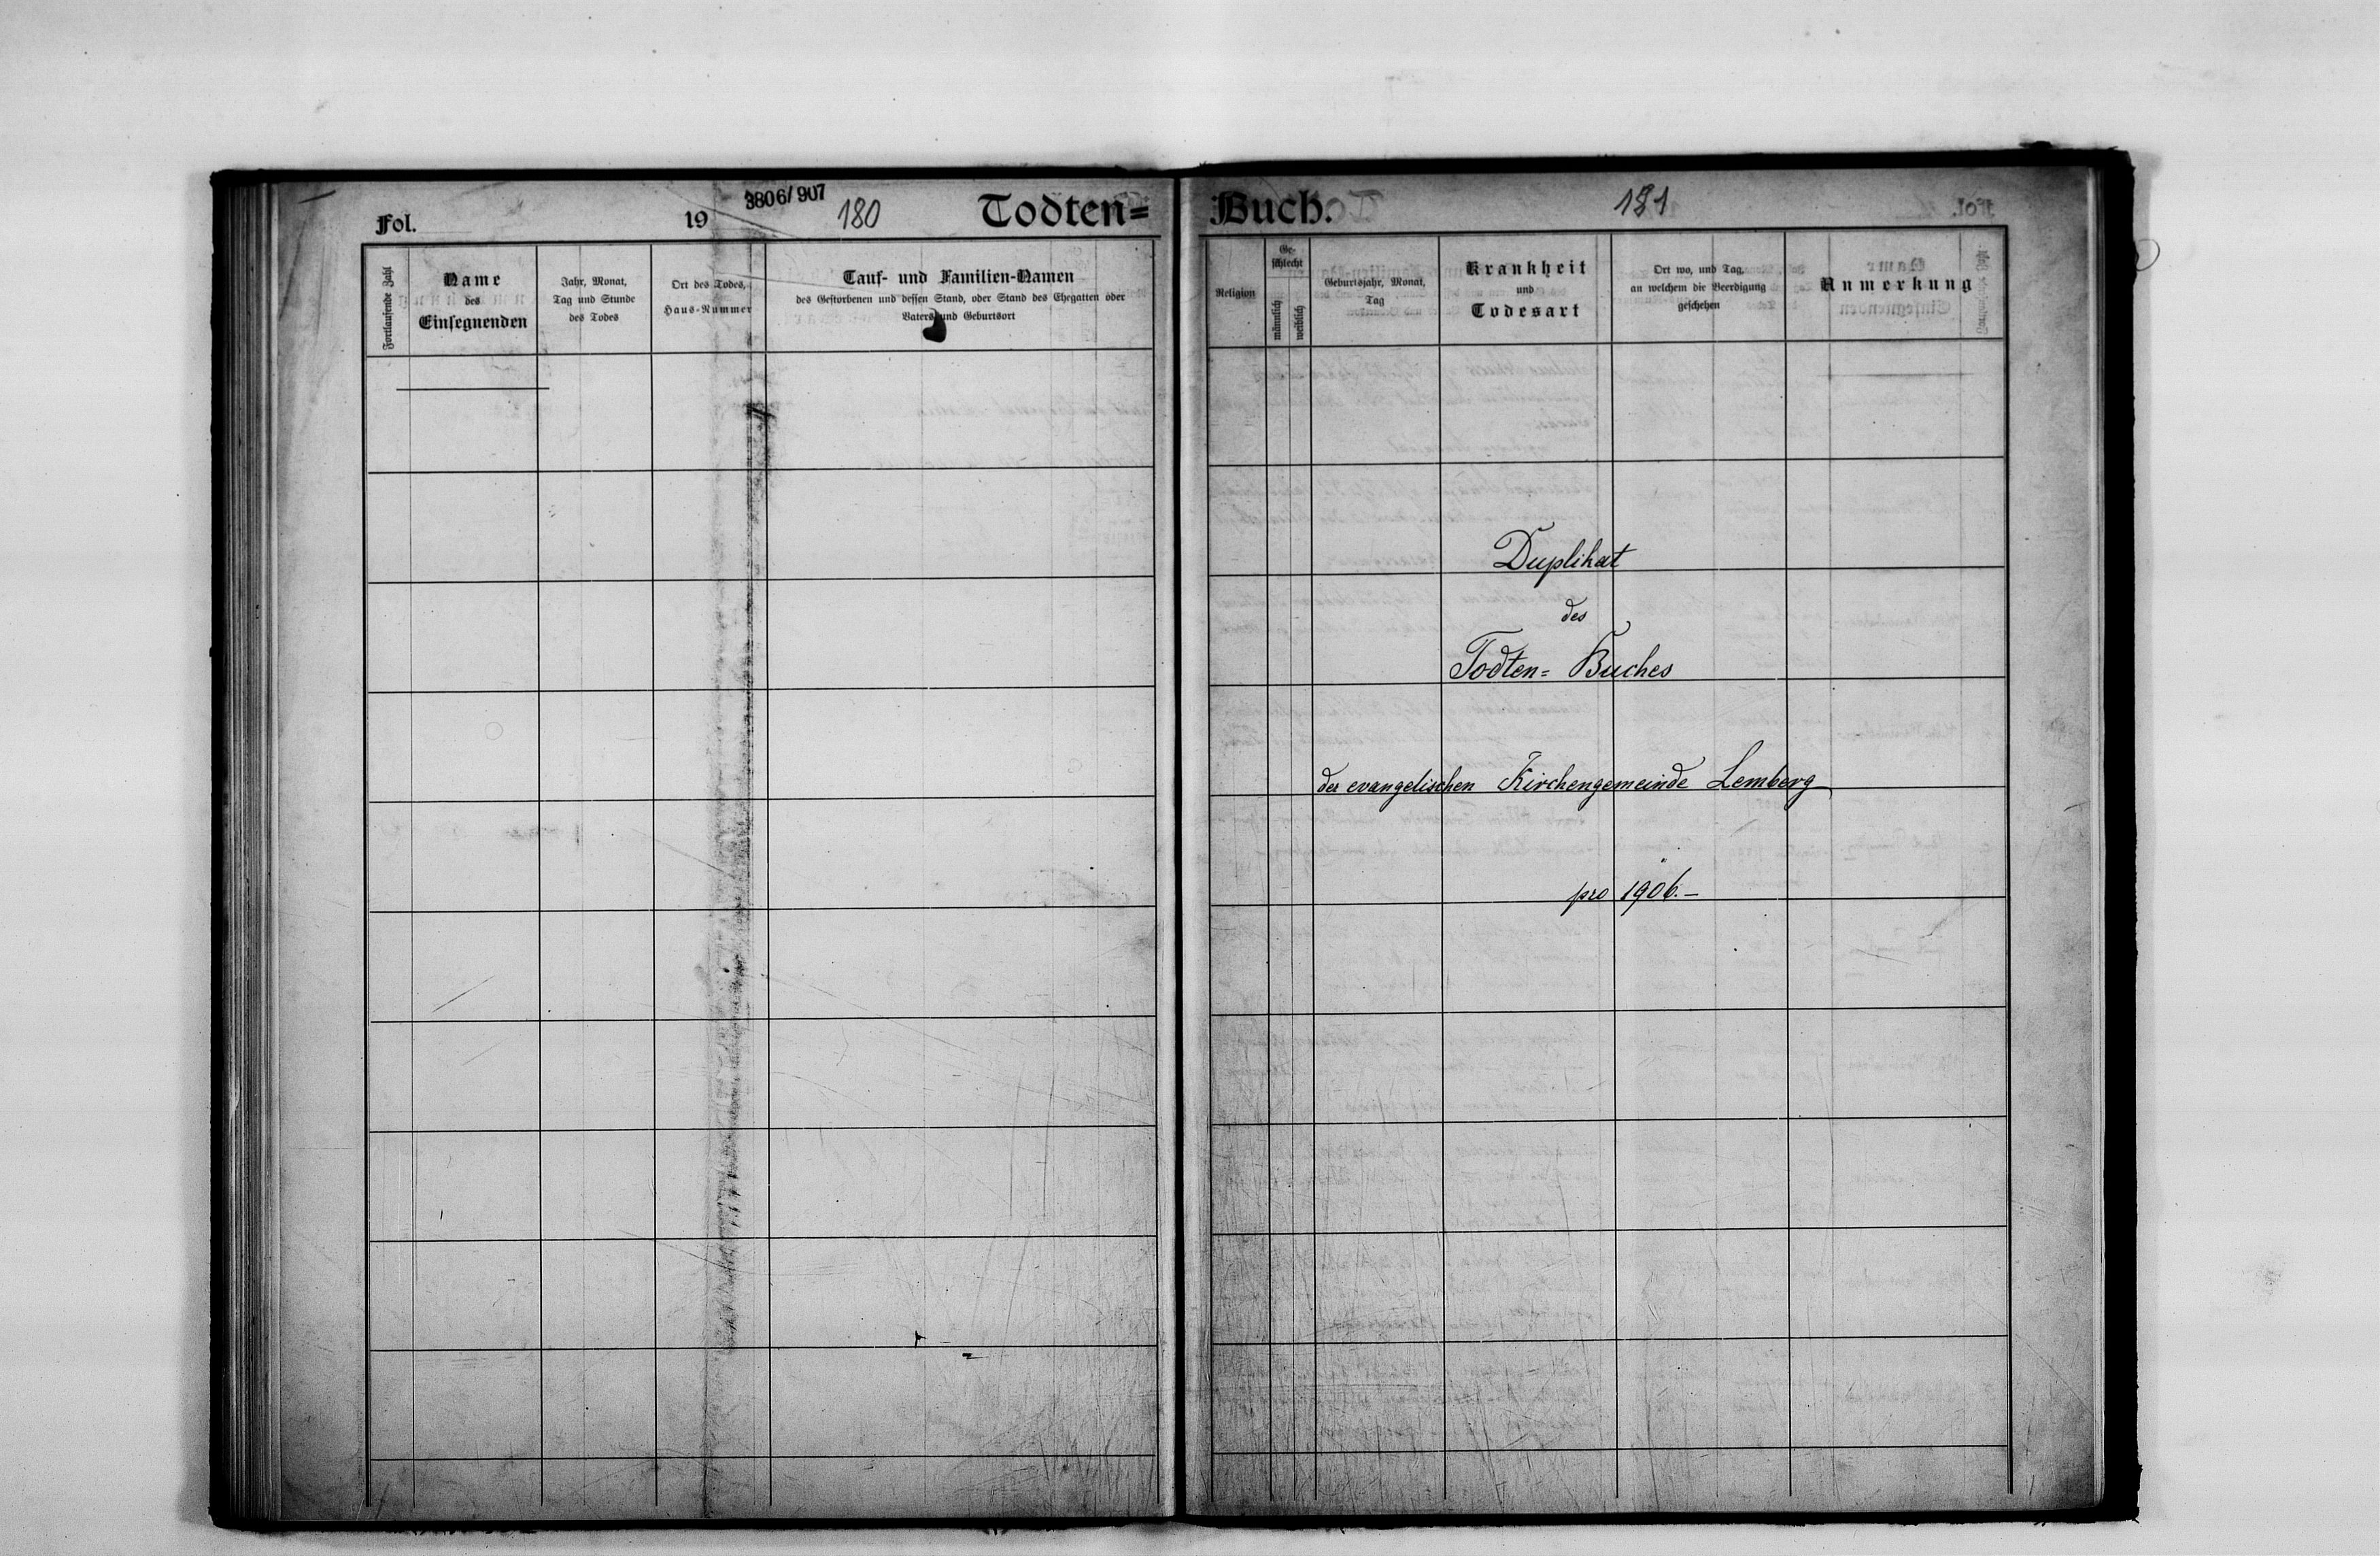 Fol. 19 3806/907 180 Todten=
Fortlaufende Zahl
Name
des
Einsegnenden
Jahr, Monat,
Tag und Stunde
des Todes
Ort des Todes,
Haus-Nummer
Tauf- und Familien-Namen
des Gestorbenen und dessen Stand, oder Stand des Ehegatten oder
Vaters und Geburtsort
Buch. 181
Religion
Ge-
schlecht
männlich
weiblich
Geburtsjahr, Monat,
Tag
Krankheit
und
Todesart
Ort wo, und Tag,
an welchem die Beerdigung
geschehen
Anmerkung
Duplikat
des
Todten= Buches
der evangelischen Kirchengemeinde Lemberg
pro 1906.–